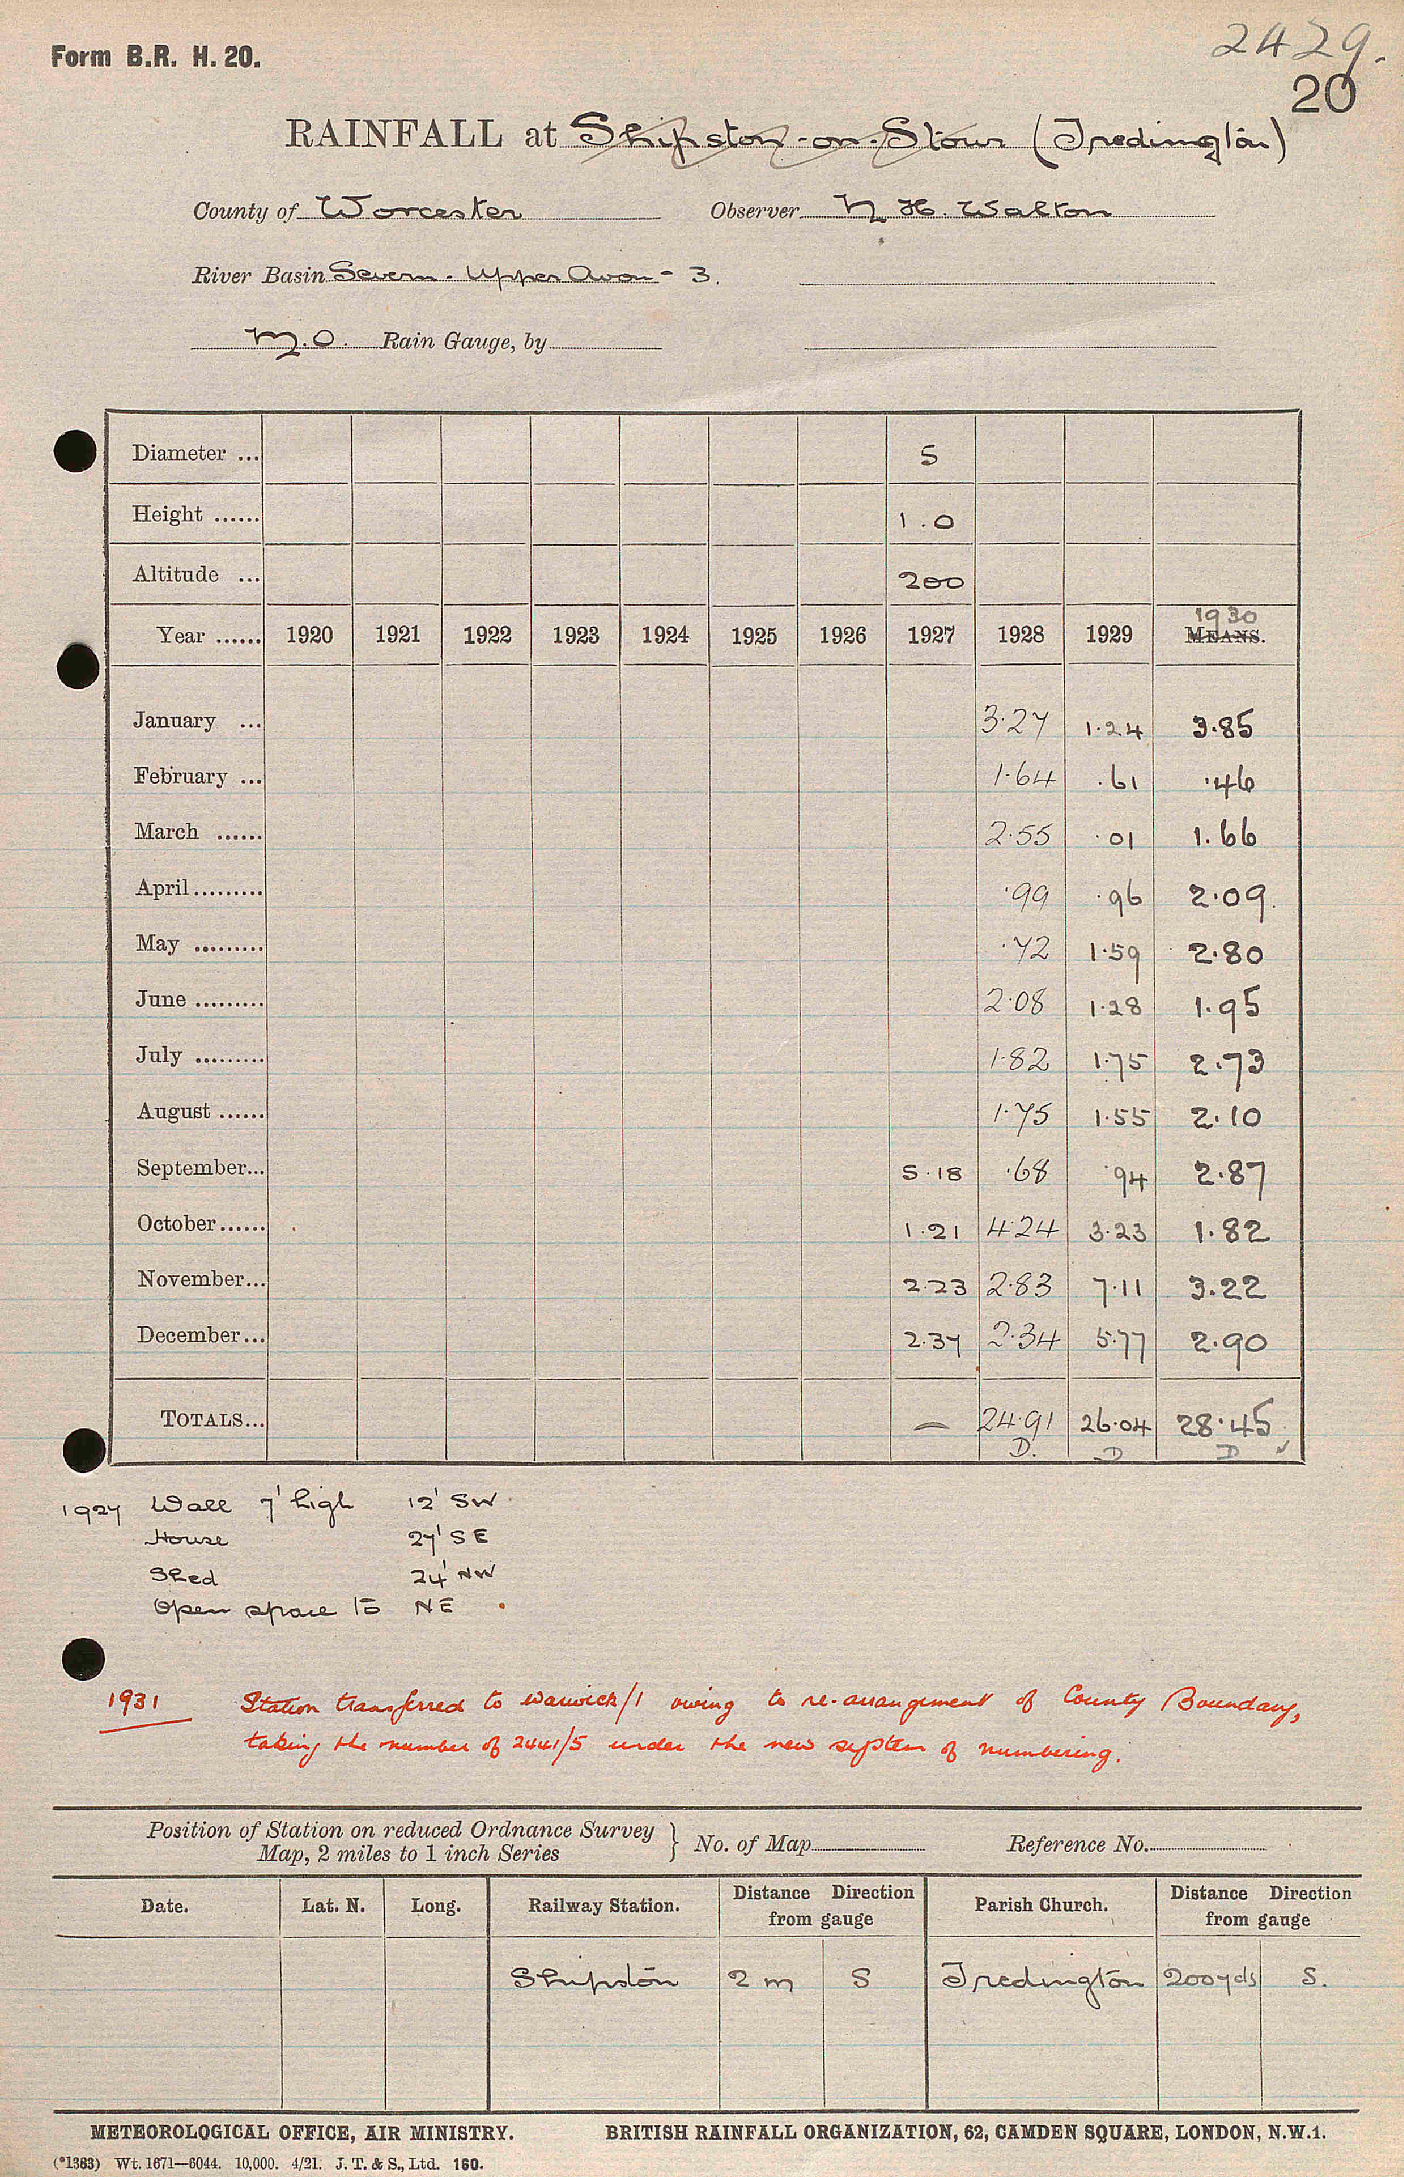 Form B.R. H. 20.
2429.
20
RAINFALL at Shipston-on-Stour (Tredington)
County of Worcester Observer N H. Walton
River Basin Severn - Upper Avon - 3.
M.O. Rain Gauge, by
Diameter ... 5
Height ...... 1.0
Altitude ... 200
1930
Year ...... 1920 1921 1922 1923 1924 1925 1926 1927 1928 1929 MEANS.
January ... 3.27 1.24 3.85
February ... 1.64 .61 .46
March ...... 2.55 .01 1.66
April......... .99 .96 2.09
May ......... .72 1.59 2.80
June ......... 2.08 1.28 1.95
July ......... 1.82 1.75 2.73
August ...... 1.75 1.55 2.10
September... 5.18 .68 .94 2.87
October...... 1.21 4.24 3.23 1.82
November... 2.23 2.83 7.11 3.22
December... 2.37 2.34 5.77 2.90
TOTALS... — 24.91 26.04 28.45
D. D D ✓
1927 Wall 7' high 12' SW
House 27' SE
Shed 24' NW
Open space to NE
1931 Station transferred to Warwick/1 owing to re-arrangement of County Boundary,
taking the number of 2441/5 under the new system of numbering.
Position of Station on reduced Ordnance Survey
Map, 2 miles to 1 inch Series } No. of Map Reference No.
Date. Lat. N. Long. Railway Station. Distance Direction from gauge Parish Church. Distance Direction from gauge
Shipston 2 m S Tredington 200 yds S.
METEOROLOGICAL OFFICE, AIR MINISTRY. BRITISH RAINFALL ORGANIZATION, 62, CAMDEN SQUARE, LONDON, N.W.1.
(*1383) Wt. 1671—6044. 10,000. 4/21. J. T. & S., Ltd. 160.